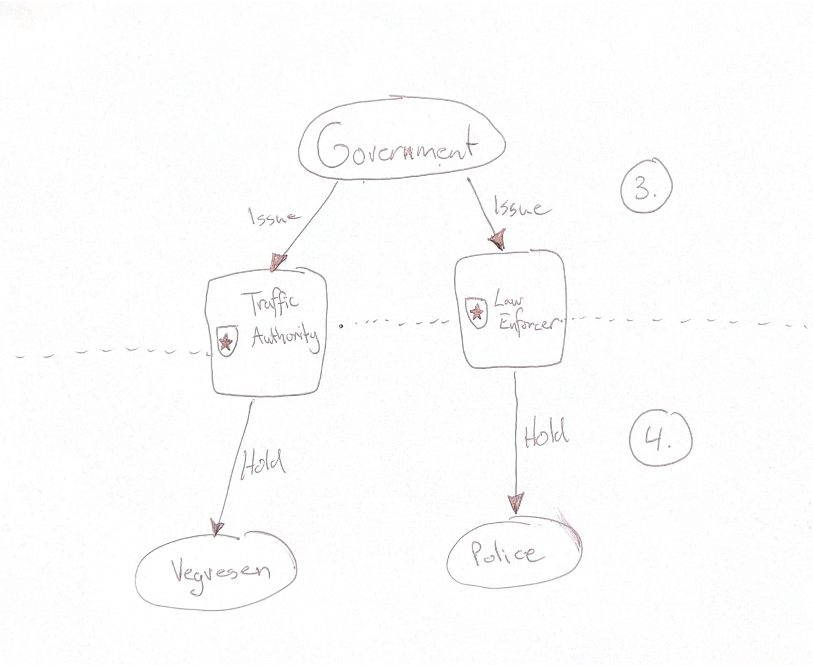 Government
3.
Issue
Issue
Traffic
Authority
Law
Enforcer
4.
Hold
Hold
Vegvesen
Police